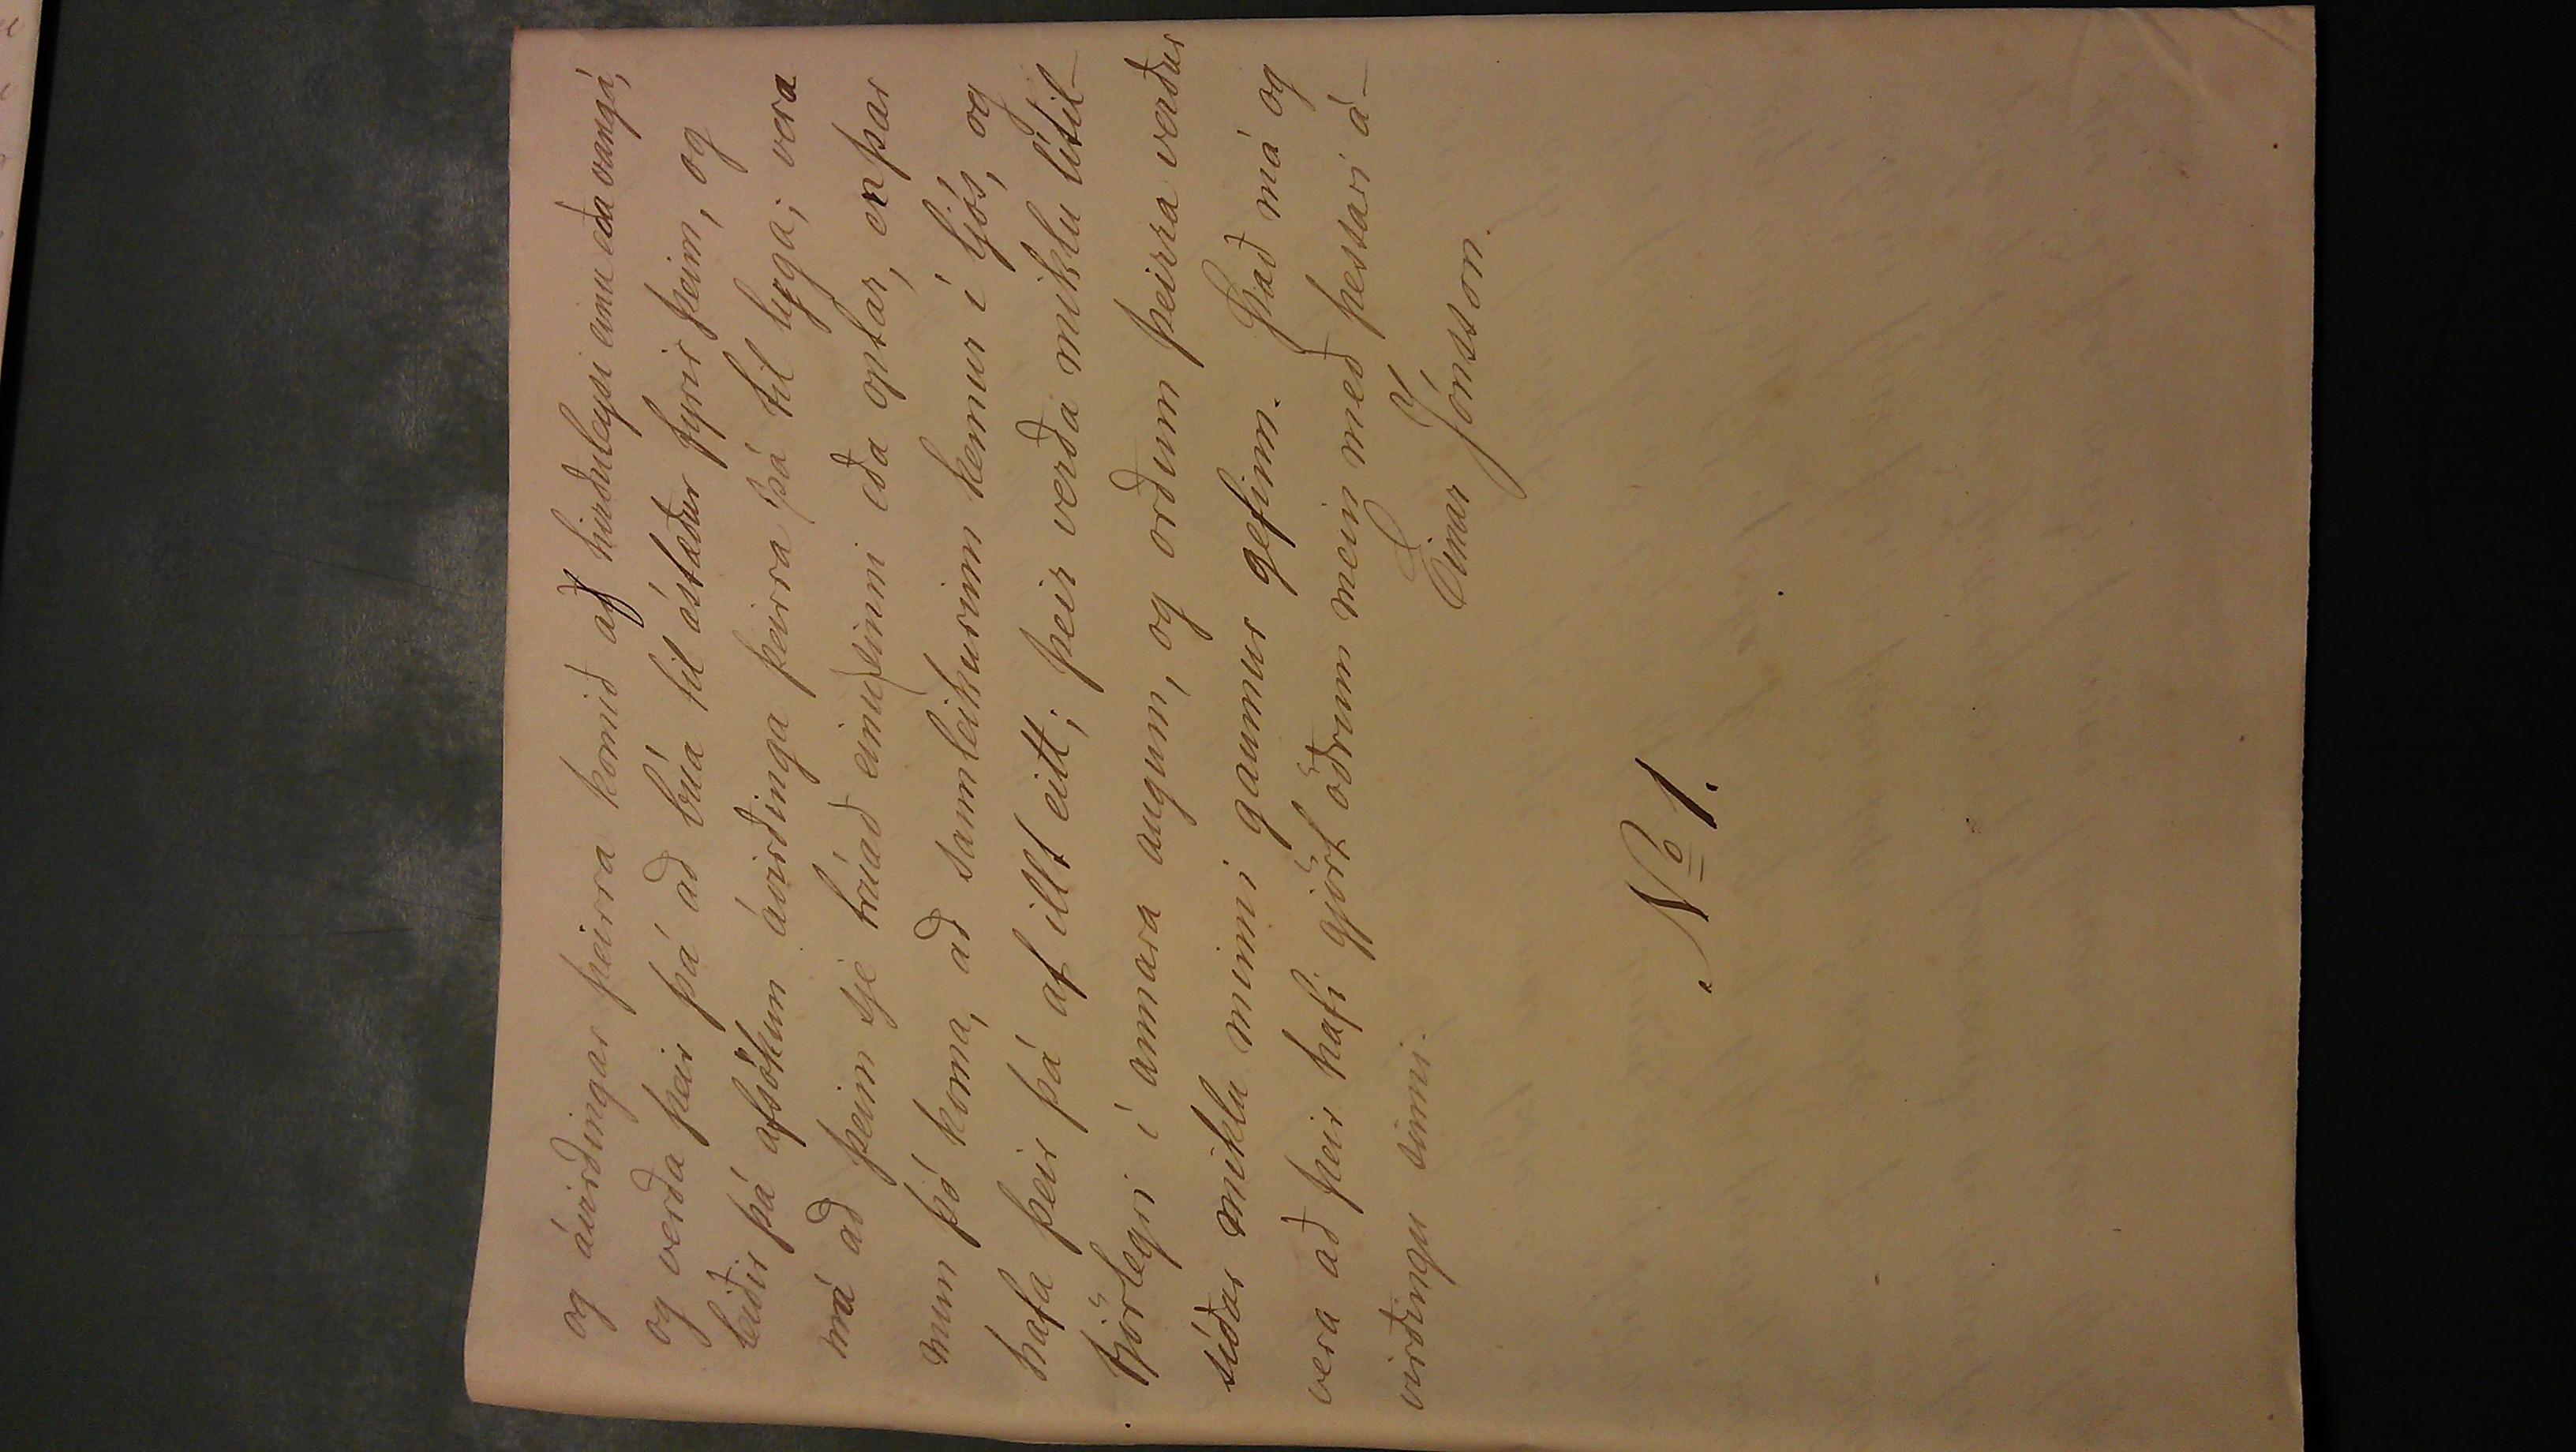 og ávirðingar þeirra komið af hirðuleysi einu eða vangá,
og verða þeir þá að búa til ástæður fyrir þeim, og
leiðir þá afsökun ávirðinga þeirra þá til lygga; vera
má að þeim sje trúað einu sinni eða optar, en þar
mun þó koma, að sannleikurinn kemur í ljós, og
hafa þeir þá af illt eitt; þeir verða miklu lítil-
fjörlegri í annara augum, og orðum þeirra verður
síðar miklu minni gaumur gefinn. Það má og
vera að þeir hafi gjört öðrum mein með þessari á-
virðingu sinni.
Einar Jónsson.
No 1.